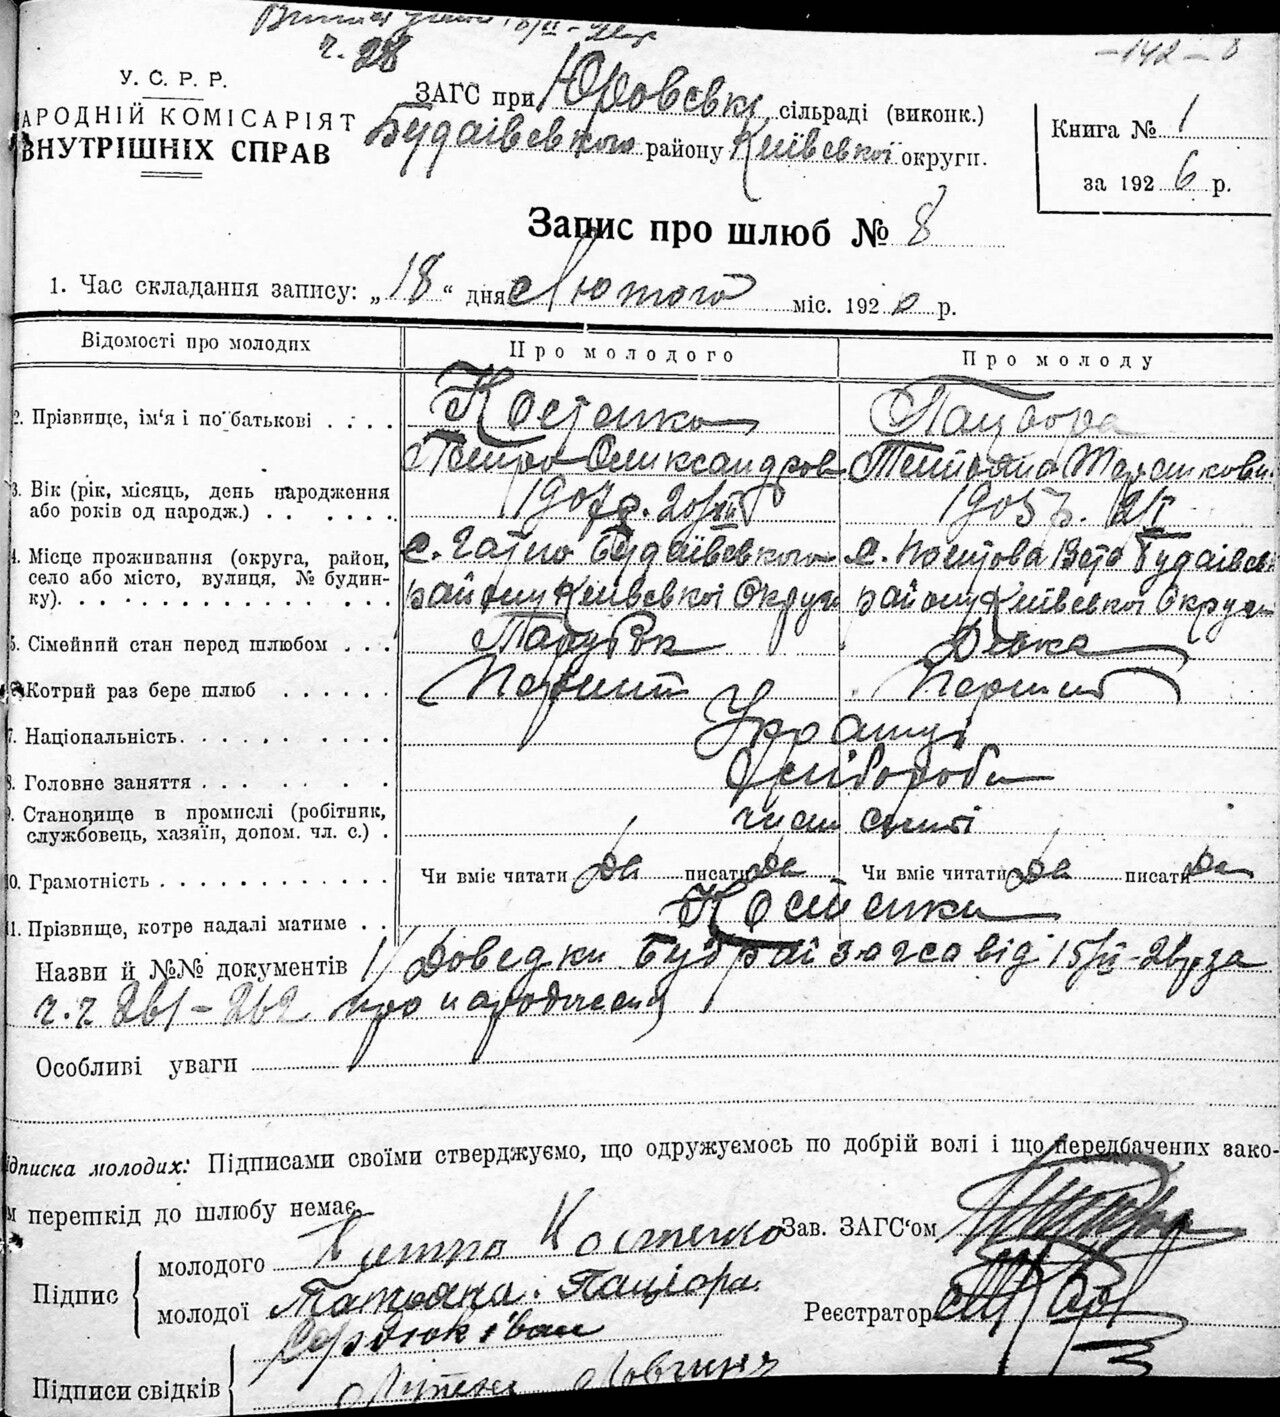 ч. 28
-142-
У. С. Р. Р.
АРОДНІЙ КОМІСАРІЯТ
ВНУТРІШНІХ СПРАВ
ЗАГС при Юровські сільраді (виконк.)
Будаівського району Київської округи.
Книга № 1
за 1926 р.
Запис про шлюб № 8
1. Час складання запису: „18“ дня лютого міс. 1926 р.
Відомості про молодих
Про молодого
Про молоду
2. Прізвище, ім'я і по батькові
Костенко
Пацюра
Петро Олександров
Тетяна
3. Вік (рік, місяць, день народження
або років од народж.)
1907р. 20/XII
1905р. 12/I
4. Місце проживання (округа, район,
село або місто, вулиця, № будин-
ку).
с. Гатно Будаївського
району Київської Округи
с. Поштова Вета Будаівськ
району Київської Округи
5. Сімейний стан перед шлюбом
Парубок
Дівка
6. Котрий раз бере шлюб
Перший
Перший
7. Національність
Українці
8. Головне заняття
Хлібороби
9. Становище в промислі (робітник,
службовець, хазяїн, допом. чл. с.)
члени сем'ї
10. Грамотність
Чи вміє читати Да писати Да
Чи вміє читати Да писати Да
11. Прізвище, котре надалі матиме
Костенки
Назви й №№ документів 1/ Доведки Буд рай загса від 15/II-26р за
ч.ч 261-262 про народження
Особливі уваги
ідписка молодих: Підписами своїми стверджуємо, що одружуємось по добрій волі і що передбачених зако-
м перешкід до шлюбу немає.
Підпис
молодого Петро Костенко
молодої Татьяна Паціора
Зав. ЗАГС'ом
Реєстратор
Підписи свідків
Сердюк Іван